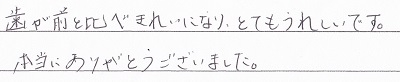 歯が前と比べきれいになり、とてもうれしいです。
本当にありがとうございました。